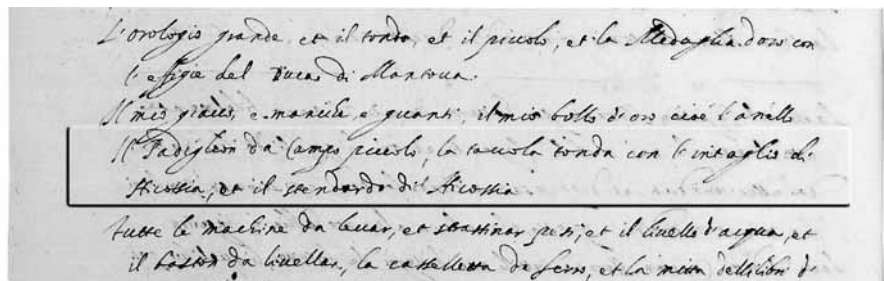 L'orologio grande et il tondo, et il piccolo, et la Medaglia d'oro con
l'effigie del Duca di Mantoua.
Il mio giacco, e maniche e guanti, il mio bollo d'oro cioè l'anello
Il Padiglion da Campo piccolo, la tauola tonda con l'intaglio di
Nicossia, et il stendardo di Nicossia
tutte le machine da leuar, et strassinar pesi, et il liuello d'acqua, et
il baston da liuellar, la casselletta de ferro, et la mitta delli libri